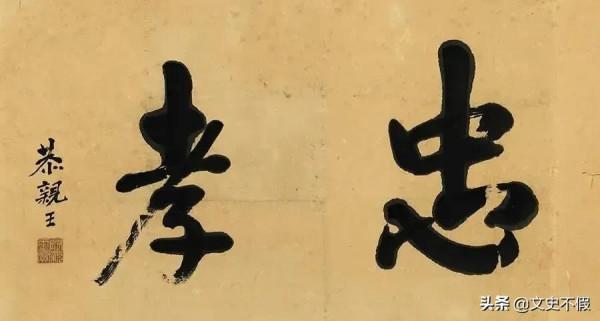 忠孝
恭親王
头条 @文史不假